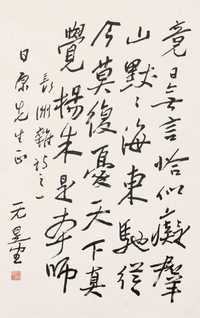 竟日無言恰似癡群
山默默海東馳從
今莫復憂天下真
覺楊朱是本師
長洲雜詩之一
日原先生正
元旦堂